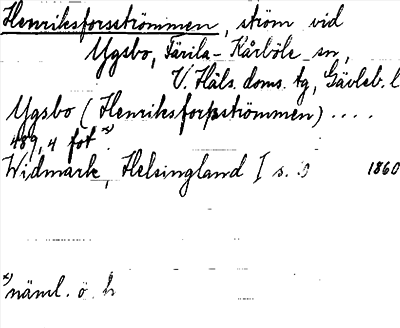 Henriksforsströmmen, ström vid
Ygsbo, Färila-Kårböle sn,
V. Häls. doms. tg, Gävleb. l
Ygsbo (Henriksforsströmmen) ....
489,4 fot x)
Widmark, Helsingland I s. 1860
x) näml. ö. h